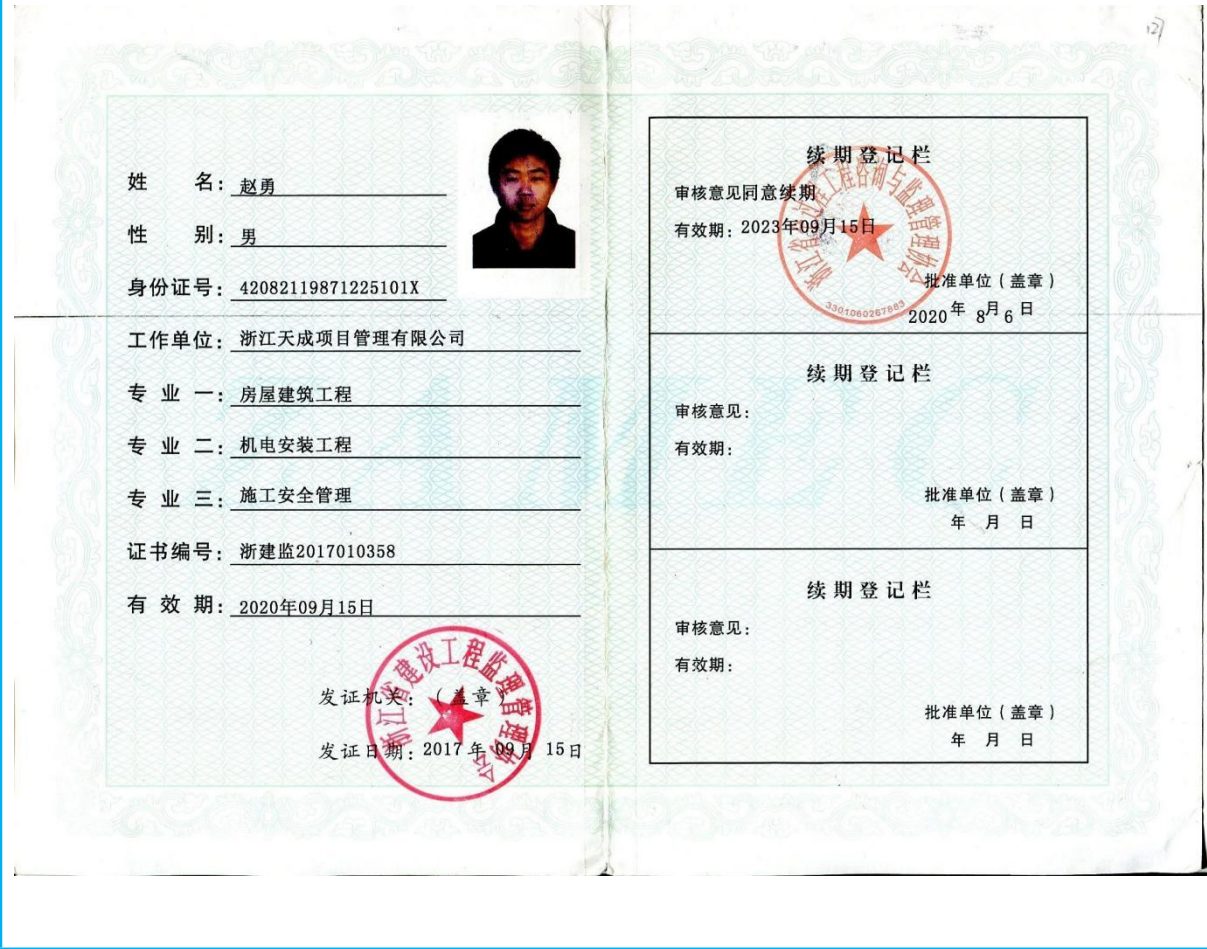 姓 名：赵勇
性 别：男
身份证号：42082119871225101X
工作单位：浙江天成项目管理有限公司
专 业 一：房屋建筑工程
专 业 二：机电安装工程
专 业 三：施工安全管理
证书编号：浙建监2017010358
有 效 期：2020年09月15日
浙江省建设工程监理管理协会
发证机关：（盖章）
发证日期：2017年09月15日
续期登记栏
审核意见同意续期
有效期：2023年09月15日
3301060267663
批准单位（盖章）
2020年 8月6日
续期登记栏
审核意见：
有效期：
批准单位（盖章）
年 月 日
续期登记栏
审核意见：
有效期：
批准单位（盖章）
年 月 日